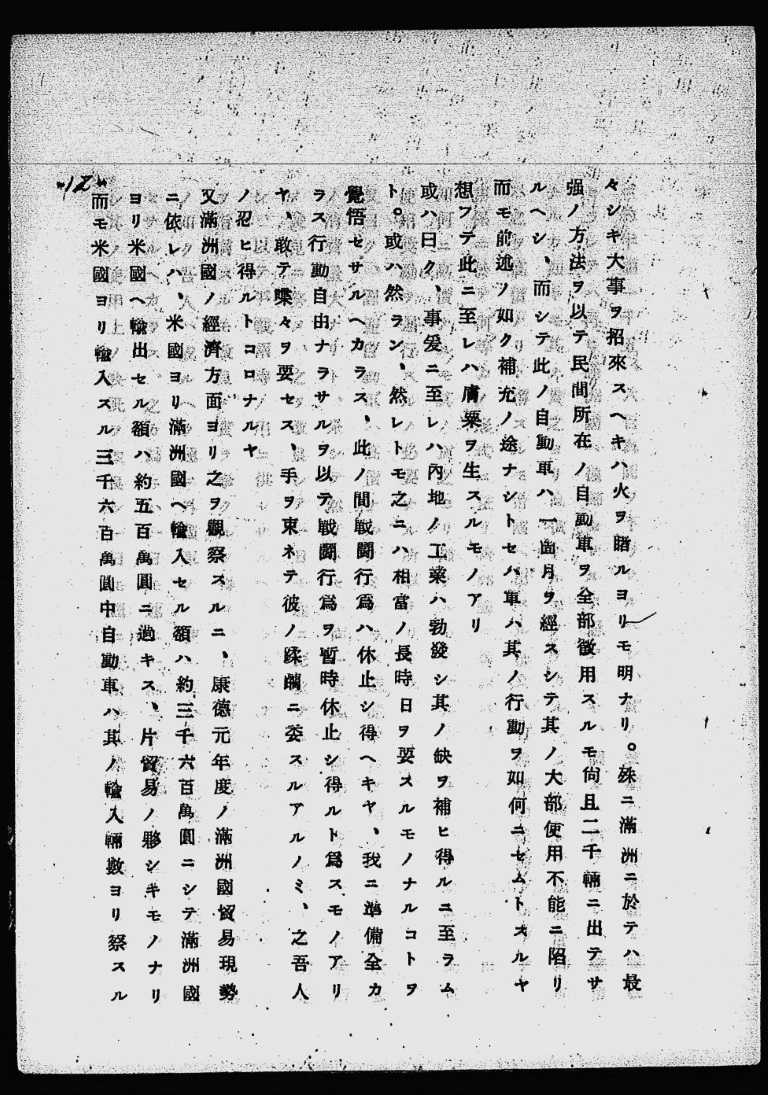 12
々シキ大事ヲ招來スヘキハ火ヲ賭ルヨリモ明ナリ。殊ニ滿洲ニ於テハ最
强ノ方法ヲ以テ民間所在ノ自動車ヲ全部徵用スルモ尙且二千輛ニ出テサ
ルヘシ、而シテ此ノ自動車ハ一箇月ヲ經スシテ其ノ大部使用不能ニ陷リ
而モ前述ノ如ク補充ノ途ナシトセバ車ハ其ノ行動ヲ如何ニセムトスルヤ
想フテ此ニ至レハ膚粟ヲ生スルモノアリ
或ハ曰ク、事爰ニ至レハ內地ノ工業ハ勃發シ其ノ缺ヲ補ヒ得ルニ至ラム
ト。或ハ然ラン、然レトモ之ニハ相當ノ長時日ヲ要スルモノナルコトヲ
覺悟セサルヘカラス、此ノ間戰鬪行爲ハ休止シ得ヘキヤ、我ニ準備全カ
ラス行動自由ナラサルヲ以テ戰鬪行爲ヲ暫時休止シ得ルト爲スモノアリ
ヤ、敢テ喋々ヲ要セス、手ヲ束ネテ彼ノ蹂躪ニ委スルアルノミ、之吾人
ノ忍ヒ得ルトコロナルヤ
又滿洲國ノ經濟方面ヨリ之ヲ觀察スルニ、康德元年度ノ滿洲國貿易現勢
ニ依レハ、米國ヨリ滿洲國ヘ輸入セル額ハ約三千六百萬圓ニシテ滿洲國
ヨリ米國ヘ輸出セル額ハ約五百萬圓ニ過キス、片貿易ノ夥シキモノナリ
而モ米國ヨリ輸入スル三千六百萬圓中自動車ハ其ノ輸入輛數ヨリ察スル